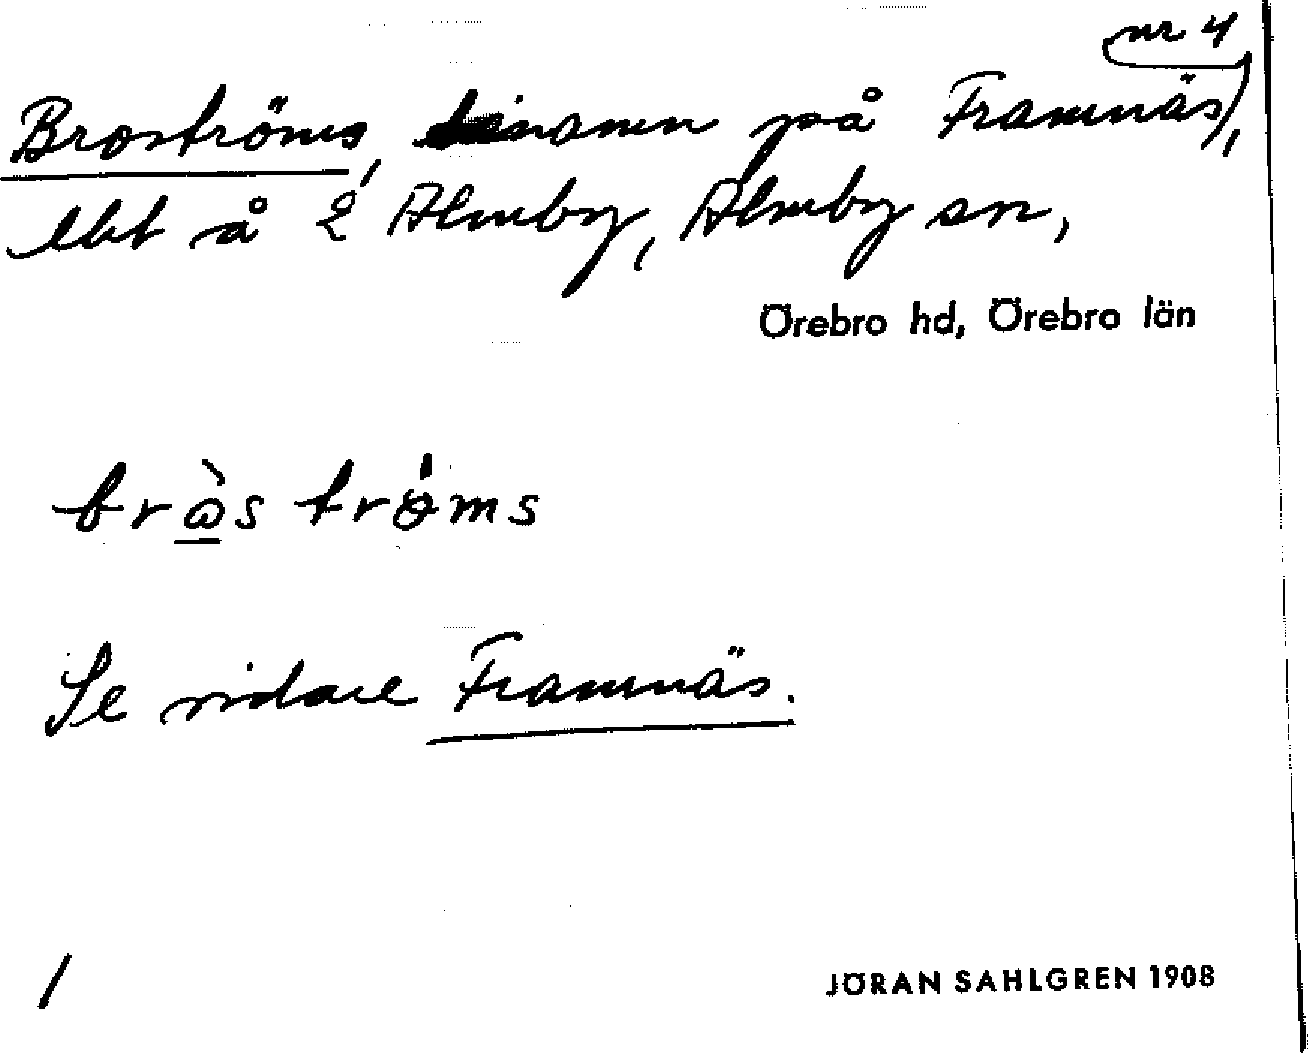 nr 4
Broströms, binamn på Framnäs),
lht å 2 Almby, Almby sn,
Örebro hd, Örebro län
bròs tröms
Se vidare Framnäs.
/
JÖRAN SAHLGREN 1908